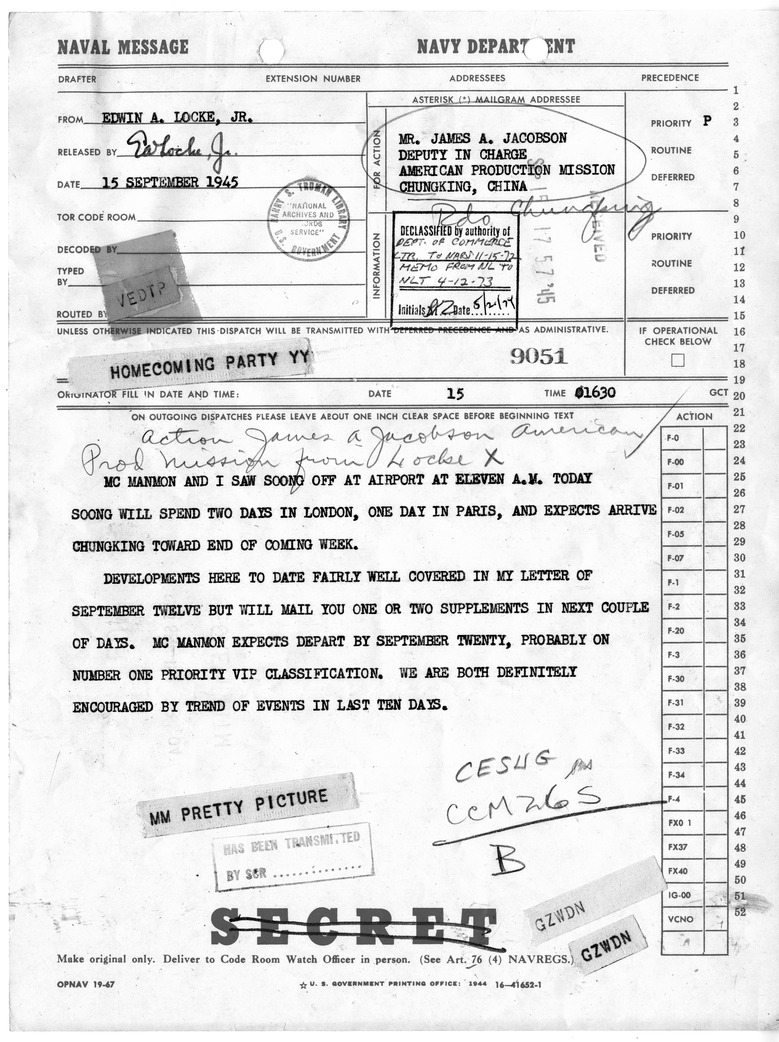 NAVAL MESSAGE NAVY DEPARTMENT
DRAFTER EXTENSION NUMBER ADDRESSEES PRECEDENCE
ASTERISK (*) MAILGRAM ADDRESSEE
FROM EDWIN A. LOCKE, JR.
RELEASED BY EALocke, Jr.
DATE 15 SEPTEMBER 1945
TOR CODE ROOM
DECODED BY
TYPED
BY
ROUTED BY
VEDTP
HARRY S. TRUMAN LIBRARY
"NATIONAL
ARCHIVES AND
RECORDS
SERVICE"
U.S. GOVERNMENT
FOR ACTION
MR. JAMES A. JACOBSON
DEPUTY IN CHARGE
AMERICAN PRODUCTION MISSION
CHUNGKING, CHINA
Rdo Chungking
PRIORITY P
ROUTINE
DEFERRED
INFORMATION
DECLASSIFIED by authority of
DEPT. OF COMMERCE
LTR. TO NARS 11-15-72
MEMO FROM NL TO
NLT 4-12-73
Initials Date
RECEIVED
17 57 '45
PRIORITY
ROUTINE
DEFERRED
UNLESS OTHERWISE INDICATED THIS DISPATCH WILL BE TRANSMITTED WITH DEFERRED PRECEDENCE AND AS ADMINISTRATIVE.
IF OPERATIONAL
CHECK BELOW
HOMECOMING PARTY YY
9051
ORIGINATOR FILL IN DATE AND TIME: DATE 15 TIME 01630 GCT
ON OUTGOING DISPATCHES PLEASE LEAVE ABOUT ONE INCH CLEAR SPACE BEFORE BEGINNING TEXT
Action James A Jacobson American
Prod Mission from Locke X
MC MANMON AND I SAW SOONG OFF AT AIRPORT AT ELEVEN A.M. TODAY
SOONG WILL SPEND TWO DAYS IN LONDON, ONE DAY IN PARIS, AND EXPECTS ARRIVE
CHUNGKING TOWARD END OF COMING WEEK.
DEVELOPMENTS HERE TO DATE FAIRLY WELL COVERED IN MY LETTER OF
SEPTEMBER TWELVE BUT WILL MAIL YOU ONE OR TWO SUPPLEMENTS IN NEXT COUPLE
OF DAYS. MC MANMON EXPECTS DEPART BY SEPTEMBER TWENTY, PROBABLY ON
NUMBER ONE PRIORITY VIP CLASSIFICATION. WE ARE BOTH DEFINITELY
ENCOURAGED BY TREND OF EVENTS IN LAST TEN DAYS.
CCM 265
B
MM PRETTY PICTURE
HAS BEEN TRANSMITTED
BY SCR ..............
SECRET
GZWDN
GZWDN
Make original only. Deliver to Code Room Watch Officer in person. (See Art. 76 (4) NAVREGS.)
OPNAV 19-67
☆ U. S. GOVERNMENT PRINTING OFFICE: 1944 16-41652-1
ACTION
F-0
F-00
F-01
F-02
F-05
F-07
F-1
F-2
F-20
F-3
F-30
F-31
F-32
F-33
F-34
F-4
FX0 1
FX37
FX40
IG-00
VCNO
1
2
3
4
5
6
7
8
9
10
11
12
13
14
15
16
17
18
19
20
21
22
23
24
25
26
27
28
29
30
31
32
33
34
35
36
37
38
39
40
41
42
43
44
45
46
47
48
49
50
51
52